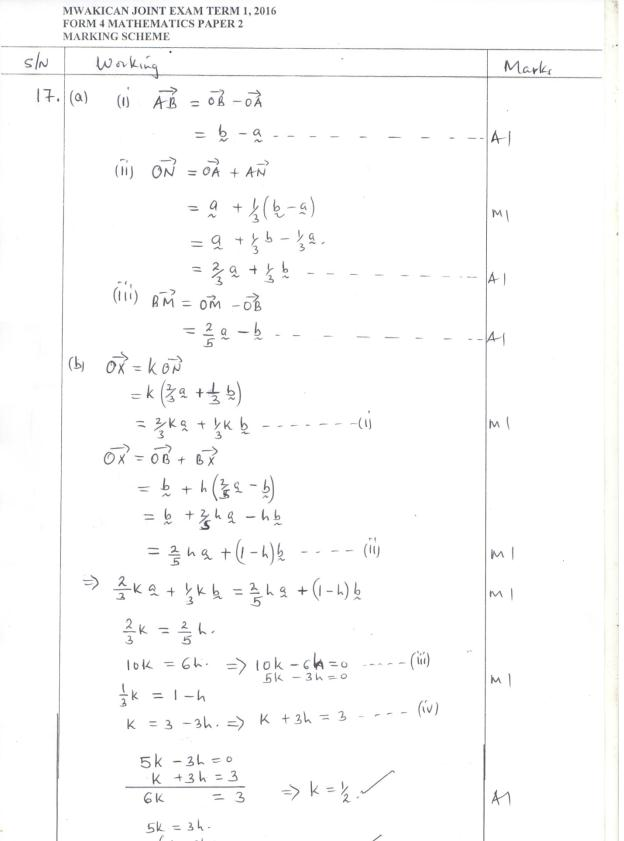 MWAKICAN JOINT EXAM TERM 1, 2016
FORM 4 MATHEMATICS PAPER 2
MARKING SCHEME
S/N Working Marks
17. (a) (i) AB→ = OB→ - OA→
= b̰ - a̰ - - - - - - - - - A1
(ii) ON→ = OA→ + AN→
= a̰ + 1/3(b̰ - a̰) M1
= a̰ + 1/3 b - 1/3 a̰.
= 2/3 a̰ + 1/3 b̰ - - - - - - - - - A1
(iii) BM→ = OM→ - OB→
= 2/5 a̰ - b̰ - - - - - - - - A1
(b) OX→ = k ON→
= k(2/3 a̰ + 1/3 b̰)
= 2/3 k a̰ + 1/3 k b̰ - - - - - - - (i) M1
OX→ = OB→ + BX→
= b̰ + h(2/5 a̰ - b̰)
= b̰ + 2/5 h a̰ - h b̰
= 2/5 h a̰ + (1 - h) b̰ - - - - (ii) M1
⇒ 2/3 k a̰ + 1/3 k b̰ = 2/5 h a̰ + (1 - h) b̰ M1
2/3 k = 2/5 h.
10k = 6h. ⇒ 10k - 6h = 0 - - - - - (iii)
5k - 3h = 0
M1
1/3 k = 1 - h
k = 3 - 3h. ⇒ k + 3h = 3 - - - - (iv)
5k - 3h = 0
k + 3h = 3
6k = 3 ⇒ k = 1/2. ✓ A1
5k = 3h.